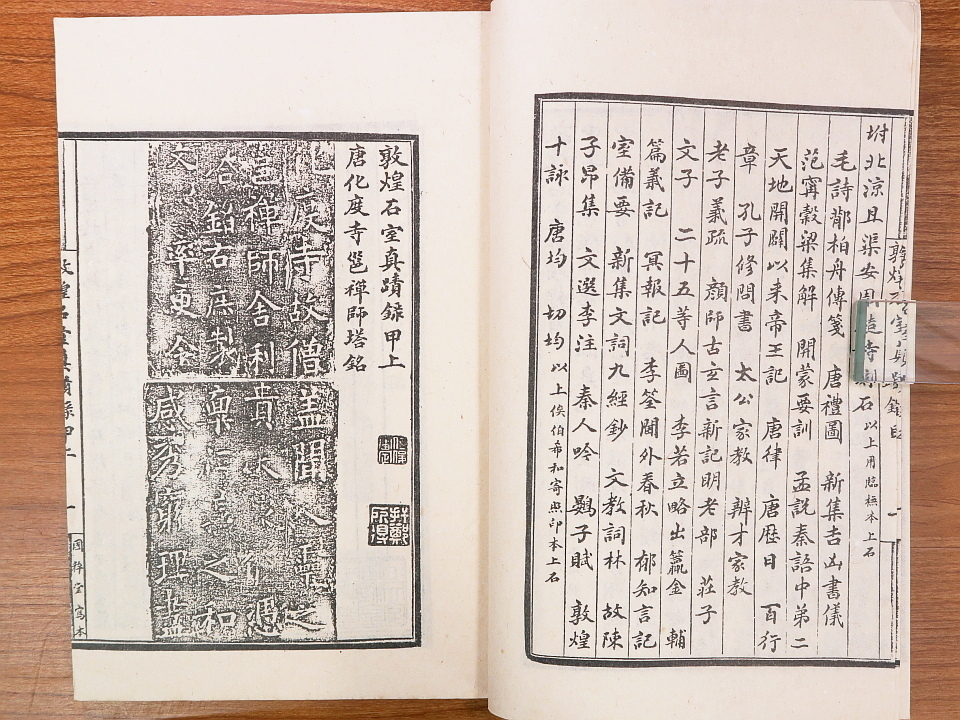 坿北涼且渠安周造寺刻石以上用臨橅本上石
毛詩鄁柏舟傳箋　唐禮圖　新集吉凶書儀
范甯穀梁集解　開蒙要訓　孟説秦語中第二
天地開闢以來帝王記　唐律　唐歷日　百行
章　孔子修問書　太公家教　辨才家教
老子義疏　顔師古玄言新記明老部　莊子
文子　二十五等人圖　李若立略出籯金　輔
篇義記　冥報記　李筌閫外春秋　郁知言記
室備要　新集文詞九經鈔　文教詞林　故陳
子昂集　文選李注　秦人吟　鷃子賦　敦煌
十詠　唐均　切均以上伯希和寄照印本上石
敦煌石室真蹟錄甲上
唐化度寺邕禪師塔銘
度寺故僧
蓋聞人
邕禪師舍利
合
製
之　和
率更令
咸
理盡
敦煌石室真蹟錄甲上
一
國粹堂寫本